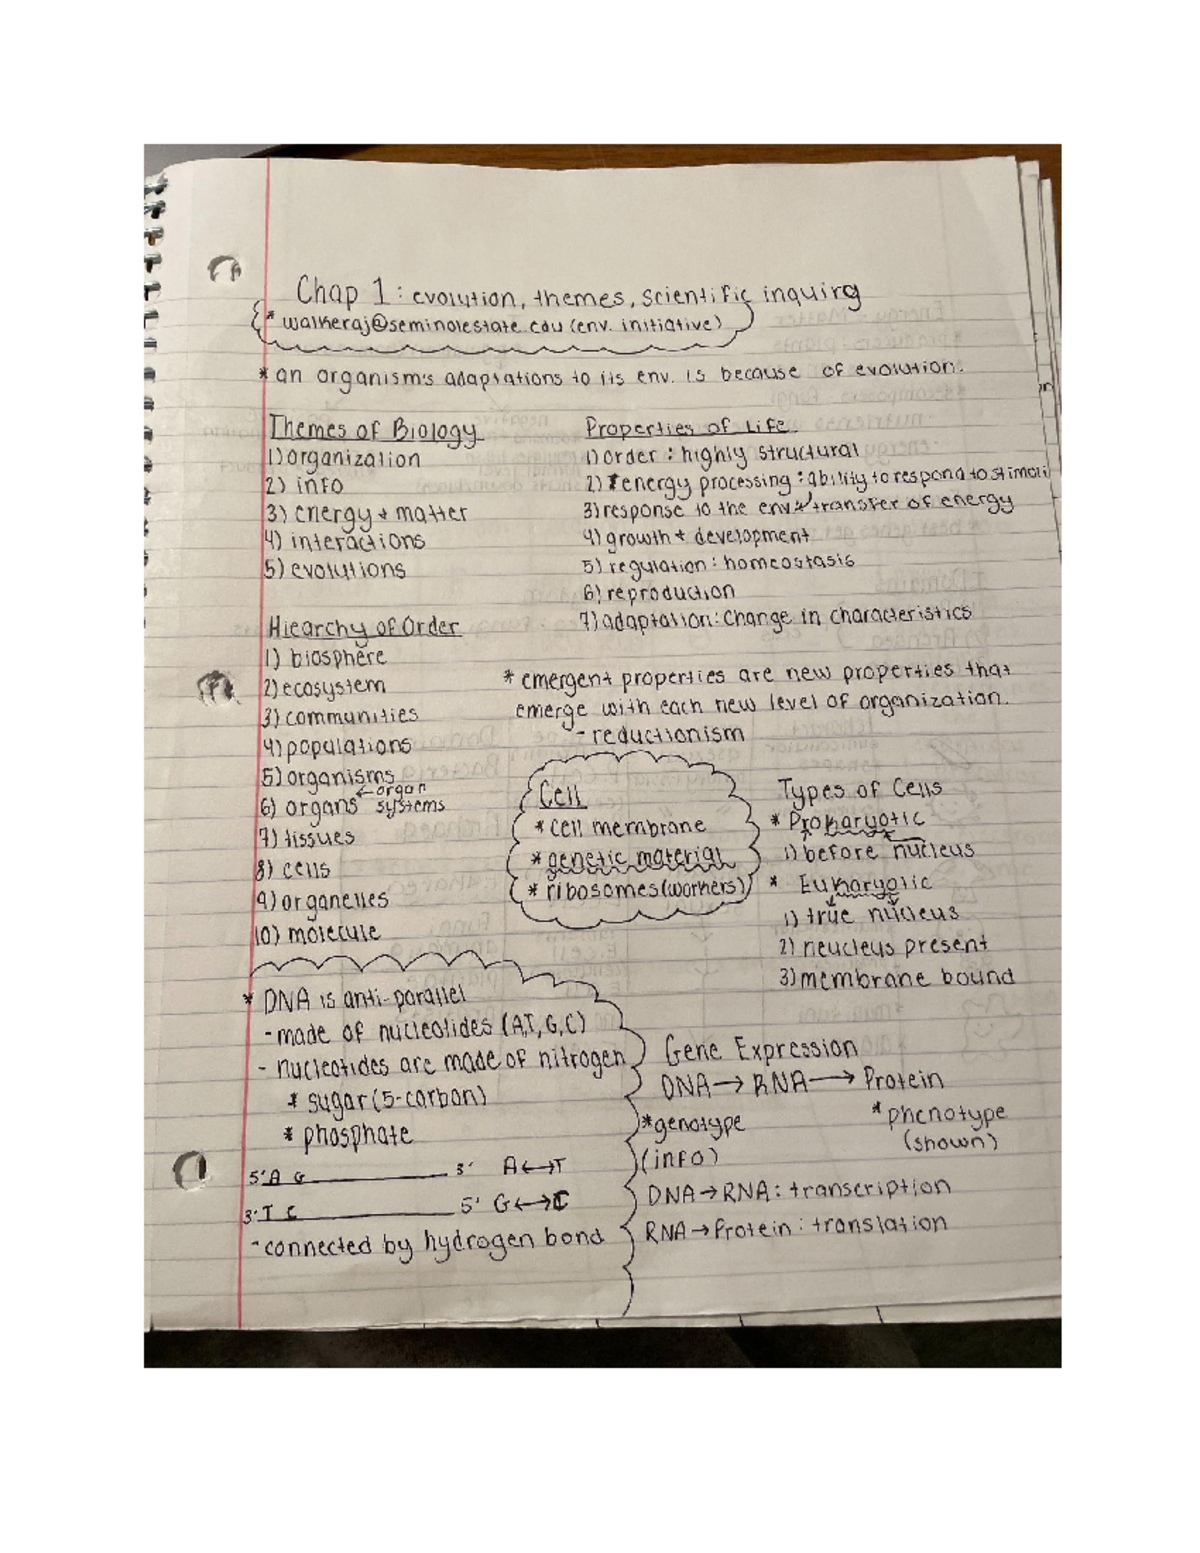 Chap 1: evolution, themes, scientific inquiry
* walkeraj@seminolestate.edu (env. initiative)
* an organism's adaptations to its env. is because of evolution.
Themes of Biology
1) organization
2) info
3) energy + matter
4) interactions
5) evolutions
Properties of Life
1) order : highly structural
2) energy processing : ability to respond to stimoli
3) response to the env. transfer of energy
4) growth + development
5) regulation : homeostasis
6) reproduction
7) adaptation: change in characteristics
Hiearchy of Order
1) biosphere
2) ecosystem
3) communities
4) populations
5) organisms
←organ
6) organs systems
7) tissues
8) cells
9) organelles
10) molecule
* emergent properties are new properties that
emerge with each new level of organization.
- reductionism
Cell
* cell membrane
* genetic material
* ribosomes (workers)
Types of Cells
* Prokaryotic
1) before nucleus
* Eukaryotic
1) true nucleus
2) neucleus present
3) membrane bound
* DNA is anti-parallel
- made of nucleotides (A,T,G,C)
- nucleotides are made of nitrogen
* sugar (5-carbon)
* phosphate
5' A G 3' A↔T
3' T C 5' G↔C
- connected by hydrogen bond
Gene Expression
DNA → RNA → Protein
*genotype *phenotype
(info) (shown)
DNA → RNA : transcription
RNA → Protein : translation